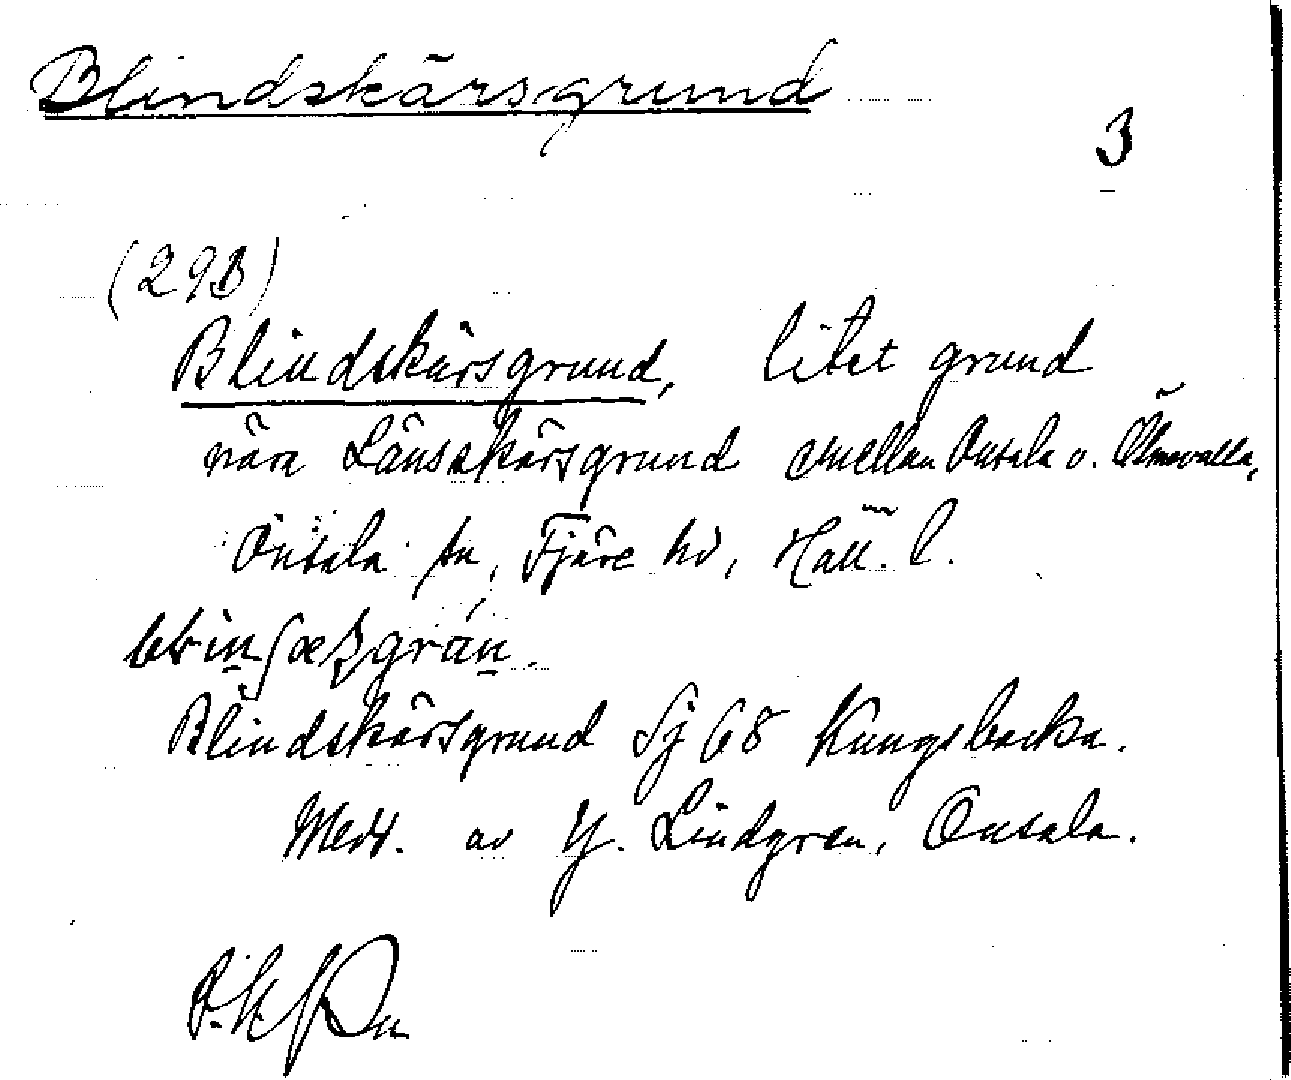 Blindskärsgrund
3
(29B)
Blindskärsgrund, litet grund
nära Länsskärsgrund mellan Onsala o. Ölmevalla,
Onsala sn, Fjäre hd, Hall. l.
Blindskärsgrund Sj 68 Kungsbacka.
Medd. av Y. Lindgren, Onsala.